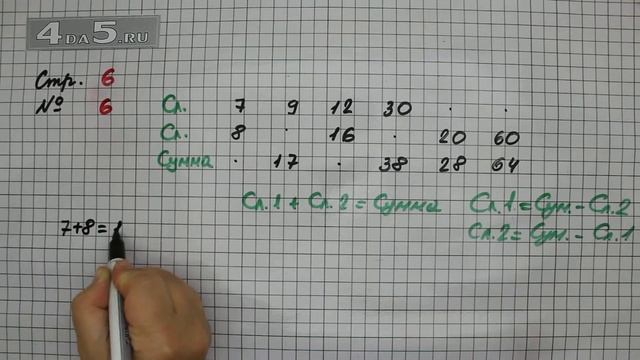 4DA5.RU
Стр. 6
№ 6
Сл. 7 9 12 30 · ·
Сл. 8 · 16 · 20 60
Сумма · 17 · 38 28 64
Сл.1 + Сл.2 = Сумма
Сл.1 = Сум. - Сл.2
Сл.2 = Сум. - Сл.1
7+8=1